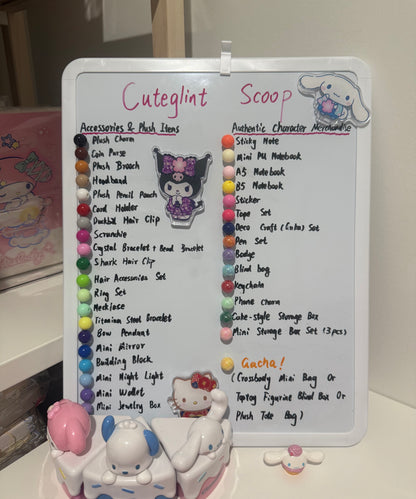 Cuteglint Scoop
Accessories & Plush Items
Plush Charm
Coin Purse
Plush Brooch
Headband
Plush Pencil Pouch
Card Holder
Duckbill Hair Clip
Scrunchie
Crystal Bracelet + Bead Bracelet
Shark Hair Clip
Hair Accessories Set
Ring Set
Necklace
Titanium Steel Bracelet
Bow Pendant
Mini Mirror
Building Block
Mini Night Light
Mini Wallet
Mini Jewelry Box
Authentic Character Merchandise
Sticky Note
Mini M4 Notebook
A5 Notebook
B5 Notebook
Sticker
Tape Set
Deco Craft (Guka) Set
Pen Set
Badge
Blind bag
Keychain
Phone charm
Cube-style Storage Box
Mini Storage Box Set (3pcs)
Gacha!
(Crossbody Mini Bag Or
Toptoy Figurine Blind Box Or
Plush Tote Bag)